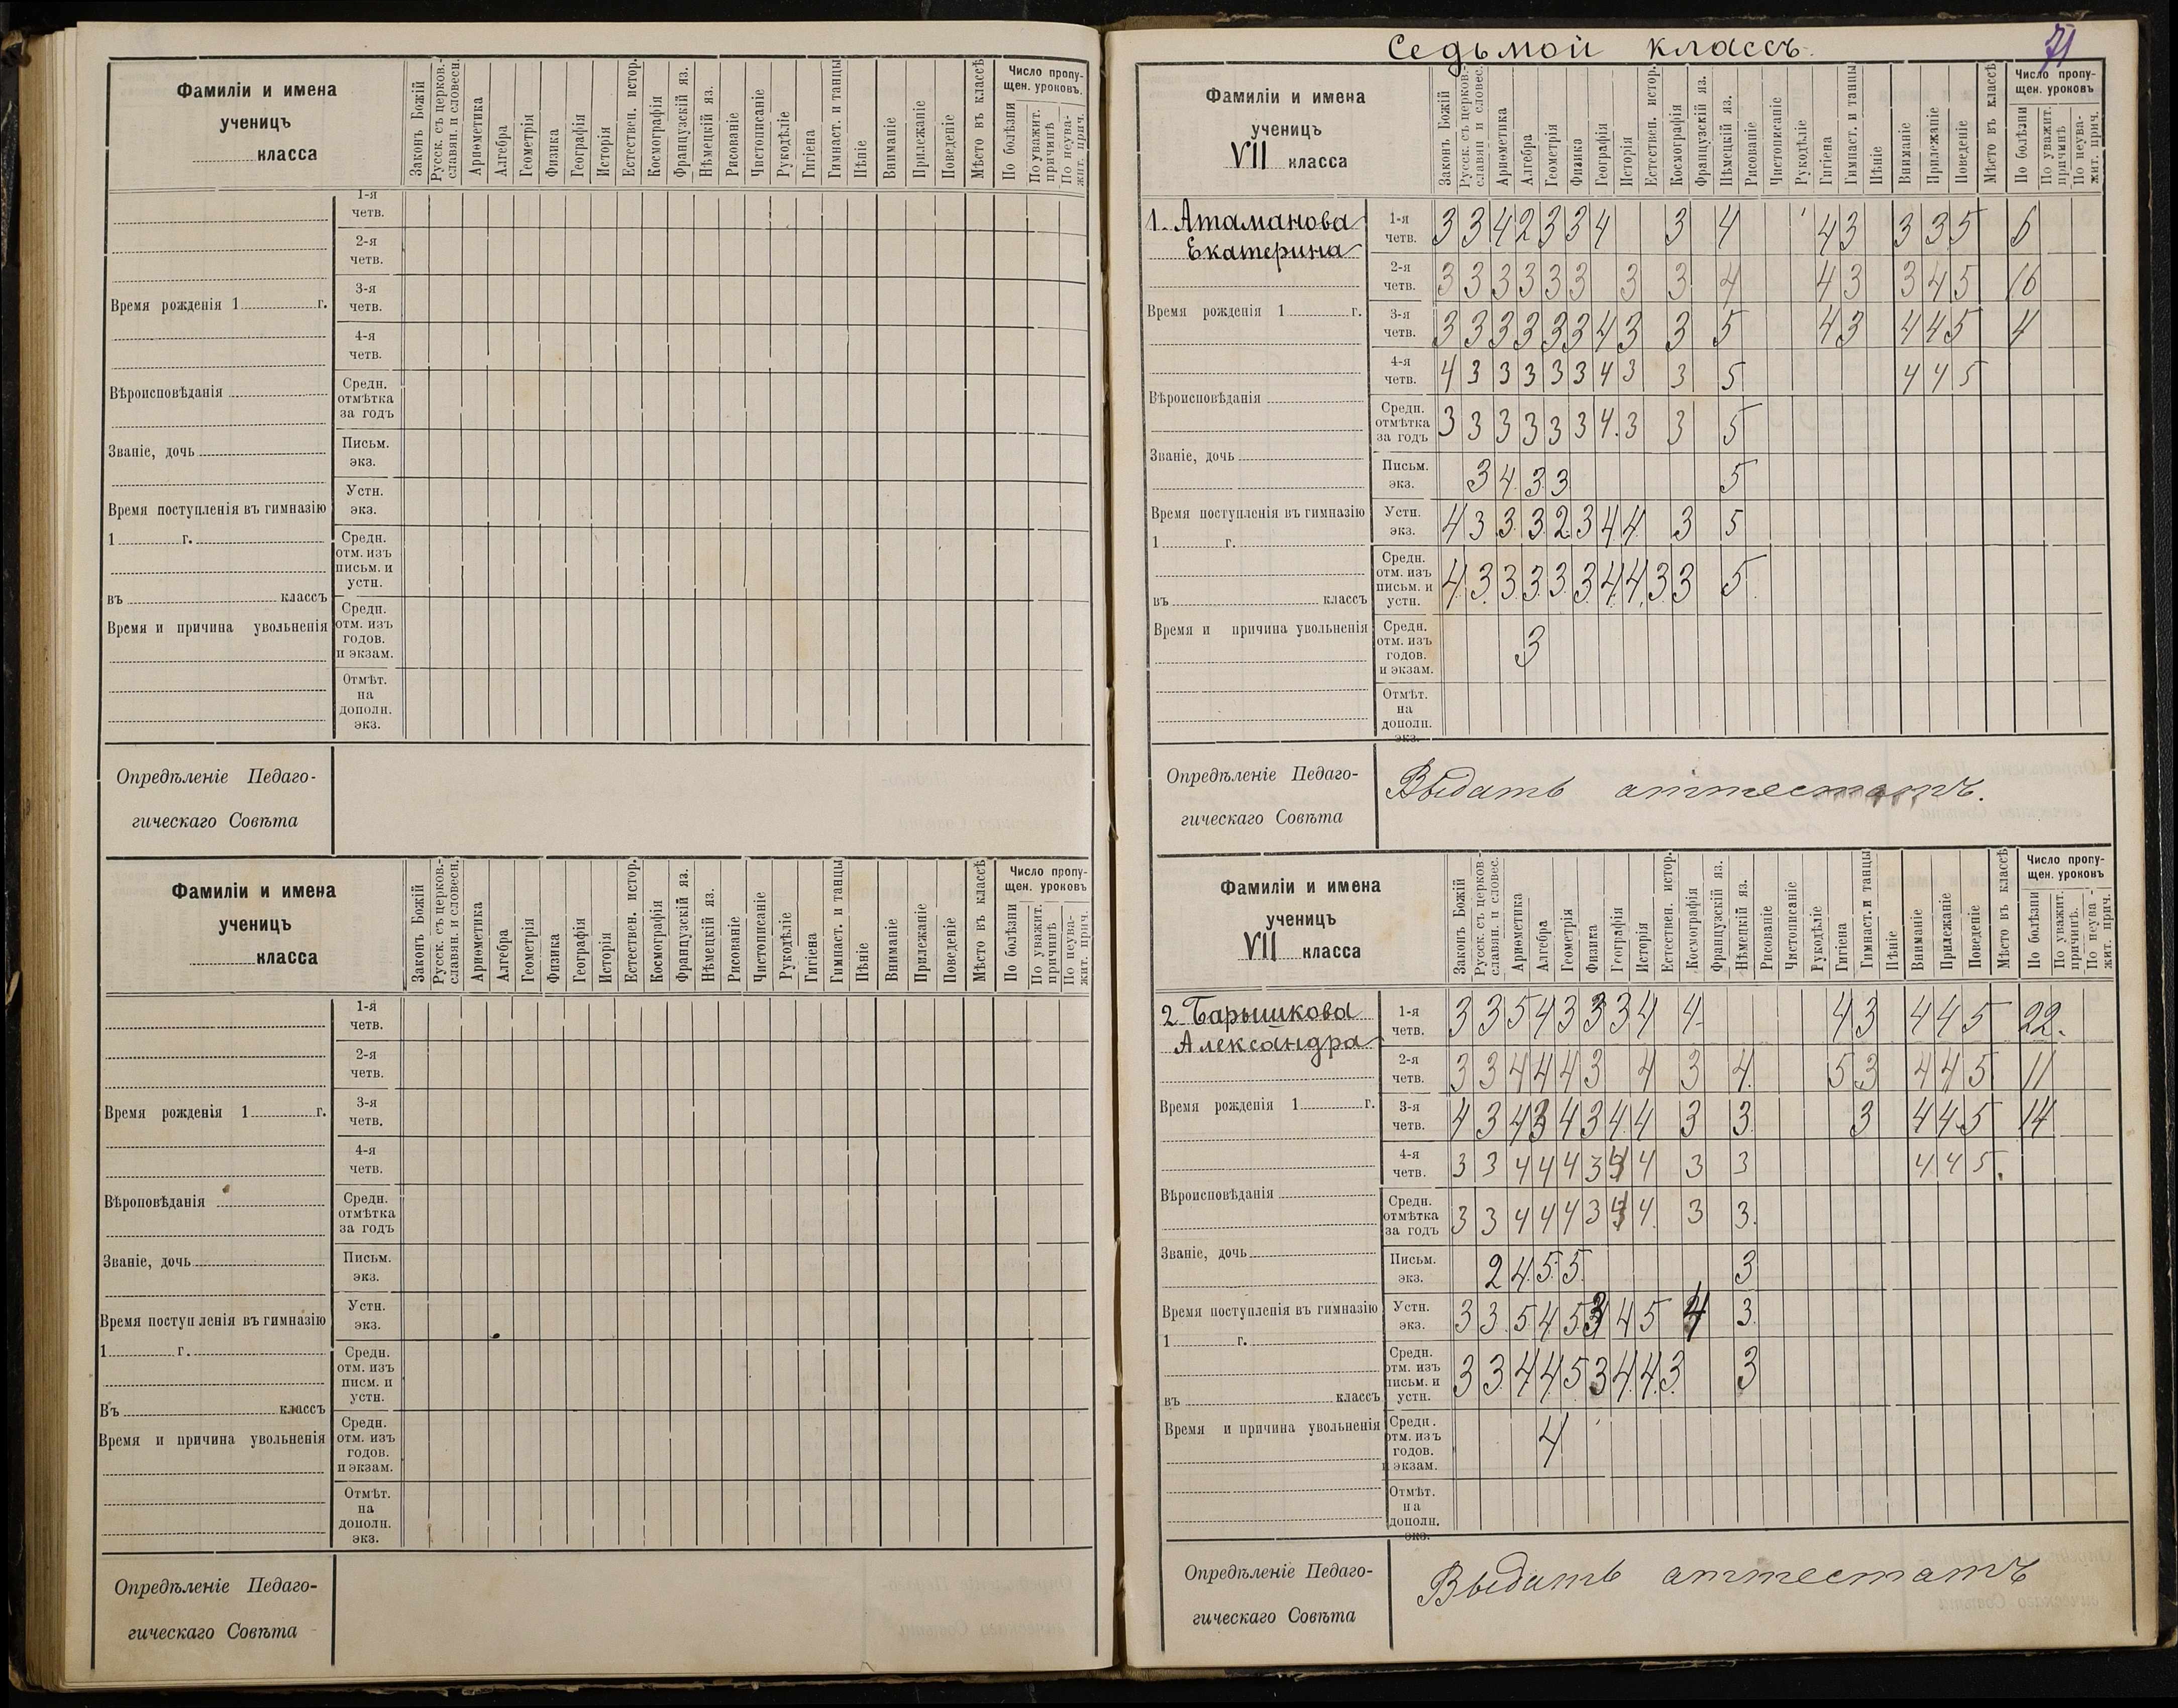 Фамиліи и имена
ученицъ
класса
Законъ Божій
Русск. съ церков.-
славян. и словесн.
Ариѳметика
Алгебра
Геометрія
Физика
Географія
Исторія
Естествен. истор.
Космографія
Французскій яз.
Нѣмецкій яз.
Рисованіе
Чистописаніе
Рукодѣліе
Гигіена
Гимнаст. и танцы
Пѣніе
Вниманіе
Прилежаніе
Поведеніе
Мѣсто въ классѣ
Число пропу-
щен. уроковъ.
По болѣзни
По уважит.
причинѣ
По неува-
жит. прич.
1-я
четв.
2-я
четв.
Время рожденія 1 г.
3-я
четв.
4-я
четв.
Вѣроисповѣданія
Средн.
отмѣтка
за годъ
Званіе, дочь
Письм.
экз.
Время поступленія въ гимназію
Устн.
экз.
1 г.
Средн.
отм. изъ
письм. и
устн.
въ классъ
Время и причина увольненія
Средн.
отм. изъ
годов.
и экзам.
Отмѣт.
на
дополн.
экз.
Опредѣленіе Педаго-
гическаго Совѣта
Фамиліи и имена
ученицъ
класса
Законъ Божій
Русск. съ церков.-
славян. и словесн.
Ариѳметика
Алгебра
Геометрія
Физика
Географія
Исторія
Естествен. истор.
Космографія
Французскій яз.
Нѣмецкій яз.
Рисованіе
Чистописаніе
Рукодѣліе
Гигіена
Гимнаст. и танцы
Пѣніе
Вниманіе
Прилежаніе
Поведеніе
Мѣсто въ классѣ
Число пропу-
щен. уроковъ
По болѣзни
По уважит.
причинѣ
По неува-
жит. прич.
1-я
четв.
2-я
четв.
Время рожденія 1 г.
3-я
четв.
4-я
четв.
Вѣроповѣданія
Средн.
отмѣтка
за годъ
Званіе, дочь
Письм.
экз.
Время поступленія въ гимназію
Устн.
экз.
1 г.
Средн.
отм. изъ
писм. и
устн.
Въ классъ
Время и причина увольненія
Средн.
отм. изъ
годов.
и экзам.
Отмѣт.
на
дополн.
экз.
Опредѣленіе Педаго-
гическаго Совѣта
Седьмой классъ.
71
Фамиліи и имена
ученицъ
VII класса
Законъ Божій
Русск. съ церков.-
славян и словес.
Ариѳметика
Алгебра
Геометрія
Физика
Географія
Исторія
Естествен. истор.
Космографія
Французскій яз.
Нѣмецкій яз.
Рисованіе
Чистописаніе
Рукодѣліе
Гигіена
Гимнаст. и танцы
Пѣніе
Вниманіе
Прилежаніе
Поведеніе
Мѣсто въ классѣ
Число пропу-
щен. уроковъ
По болѣзни
По уважит.
причинѣ
По неува-
жит. прич.
1. Атаманова
Екатерина
1-я
четв. 3 3 4 2 3 3 4 3 4 4 3 3 3 5 6
2-я
четв. 3 3 3 3 3 3 3 3 4 4 3 3 4 5 16
Время рожденія 1 г.
3-я
четв. 3 3 3 3 3 3 4 3 3 5 4 3 4 4 5 4
4-я
четв. 4 3 3 3 3 3 4 3 3 5 4 4 5
Вѣроисповѣданія
Средн.
отмѣтка
за годъ 3 3 3 3 3 3 4. 3 3 5
Званіе, дочь
Письм.
экз. 3 4 3 3 5
Время поступленія въ гимназію
Устн.
экз. 4 3 3 3 2 3 4 4 3 5
1 г.
Средн.
отм. изъ
письм. и
устн. 4 3 3 3 3 3 4 4 3 3 5
въ классъ
Время и причина увольненія
Средн.
отм. изъ
годов.
и экзам. 3
Отмѣт.
на
дополн.
экз.
Опредѣленіе Педаго-
гическаго Совѣта
Выдать аттестатъ.
Фамиліи и имена
ученицъ
VII класса
Законъ Божій
Русск. съ церков-
славян. и словес.
Ариѳметика
Алгебра
Геометрія
Физика
Географія
Исторія
Естествен. истор.
Космографія
Французскій яз.
Нѣмецкій яз.
Рисованіе
Чистописаніе
Рукодѣліе
Гигіена
Гимнаст. и танцы
Пѣніе
Вниманіе
Прилежаніе
Поведеніе
Мѣсто въ классѣ
Число пропу-
щен. уроковъ
По болѣзни
По уважит.
причинѣ.
По неува-
жит. прич.
2. Барышкова
Александра
1-я
четв. 3 3 5 4 3 3 3 4 4 4 3 4 4 5 22.
2-я
четв. 3 3 4 4 4 3 4 3 4. 5 3 4 4 5 11
Время рожденія 1 г.
3-я
четв. 4 3 4 3 4 3 4 4 3 3 3 4 4 5 14
4-я
четв. 3 3 4 4 4 3 4 4 3 3 4 4 5.
Вѣроисповѣданія
Средн.
отмѣтка
за годъ 3 3 4 4 4 3 4 4. 3 3.
Званіе, дочь
Письм.
экз. 2 4 5 5 3
Время поступленія въ гимназію
Устн.
экз. 3 3 5 4 5 3 4 5 4 3.
1 г.
Средн.
отм. изъ
письм. и
устн. 3 3 4 4 5 3 4 4 3 3
въ классъ
Время и причина увольненія
Средн.
отм. изъ
годов.
и экзам. 4
Отмѣт.
на
дополн.
экз.
Опредѣленіе Педаго-
гическаго Совѣта
Выдать аттестатъ